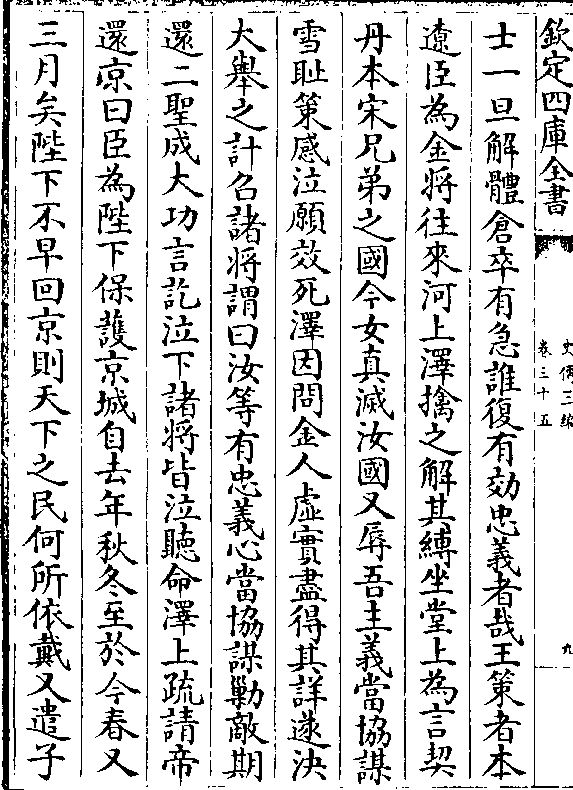 欽定四庫全書
史傳三編
卷三十五
九
士一旦解體倉卒有急誰復有効忠義者哉王策者本
遼臣為金將往來河上澤擒之解其縛坐堂上為言契
丹本宋兄弟之國今女真滅汝國又辱吾主義當協謀
雪恥策感泣願效死澤因問金人虛實盡得其詳遂決
大舉之計召諸將謂曰汝等有忠義心當協謀勦敵期
還二聖成大功言訖泣下諸將皆泣聽命澤上疏請帝
還京曰臣為陛下保護京城自去年秋冬至於今春又
三月矣陛下不早回京則天下之民何所依戴又遣子